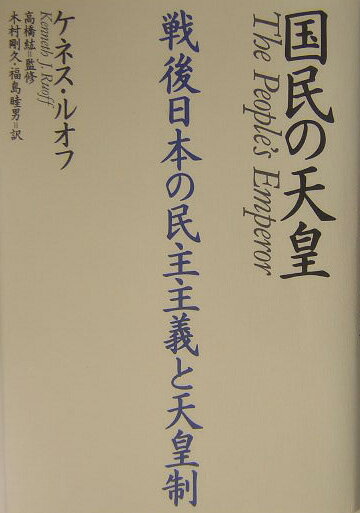 国民の天皇
The People's Emperor
戦後日本の民主主義と天皇制
ケネス・ルオフ
Kenneth J. Ruoff
高橋紘=監修
木村剛久・福島睦男=訳